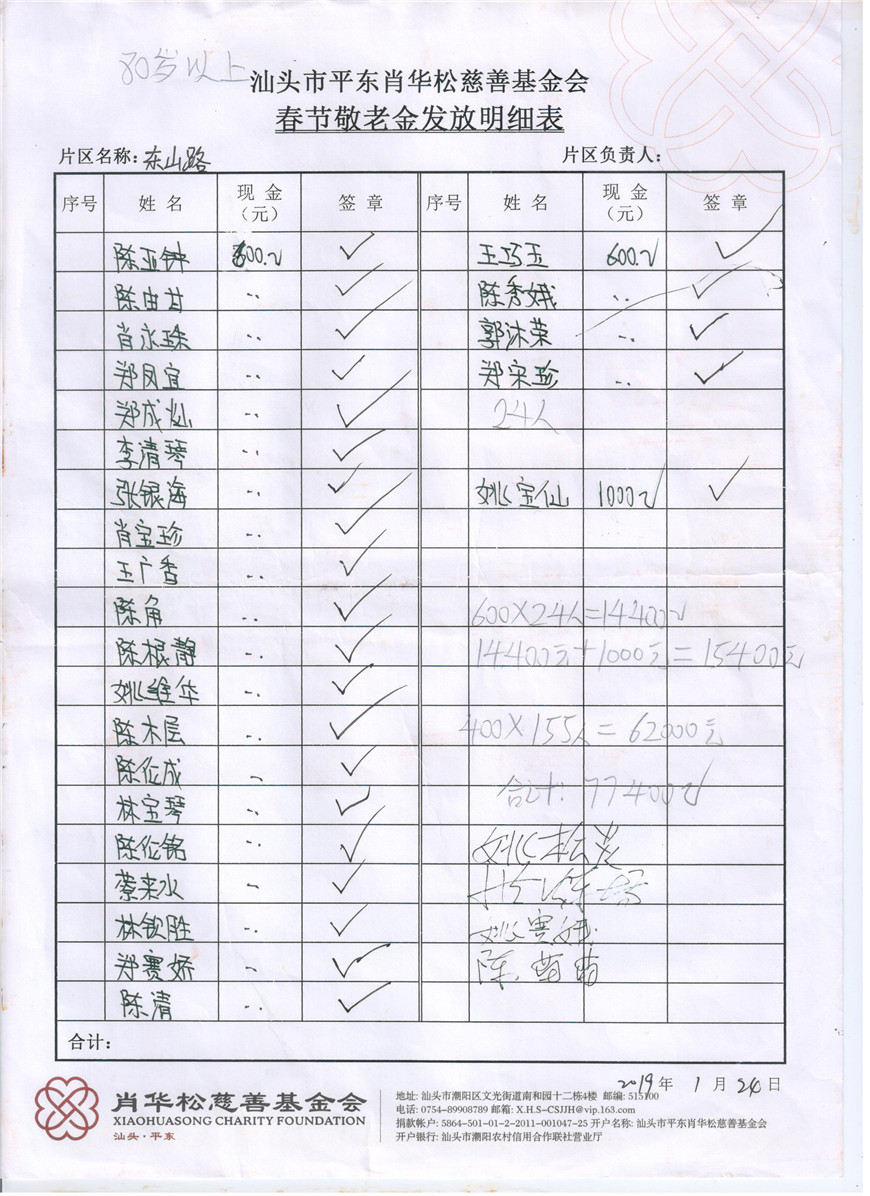 80岁以上
汕头市平东肖华松慈善基金会
春节敬老金发放明细表
片区名称：东山路 片区负责人：
序号 姓名 现金（元） 签章 序号 姓名 现金（元） 签章
陈亚钟 600.元 ✓ 王巧玉 600.元 ✓
陈由甘 ·· ✓ 陈秀娥 ·· ✓
肖永珠 ·· ✓ 郭沐荣 ·· ✓
郑凤宜 ·· ✓ 郑宋珍 ·· ✓
郑成灿 ·· ✓ 24人
李清琴 ·· ✓
张银海 ·· ✓ 姚宝仙 1000元 ✓
肖宝珍 ·· ✓
王广香 ·· ✓
陈角 ·· ✓ 600×24人=14400元
陈根静 ·· ✓ 14400元+1000元=15400元
姚维华 ·· ✓
陈木层 ·· ✓ 400×155人=62000元
陈伦成 ·· ✓
林宝琴 ·· ✓ 合计：77400元
陈伦铭 ·· ✓ 姚松
蔡来水 ·· ✓
林钦胜 ·· ✓ 姚赛娥
郑赛娇 ·· ✓ 陈
陈清 ·· ✓
合计：
2019年1月24日
肖华松慈善基金会
XIAOHUASONG CHARITY FOUNDATION
汕头·平东
地址: 汕头市潮阳区文光街道南和园十二栋4楼 邮编: 515100
电话: 0754-89908789 邮箱: X.H.S-CSJJH@vip.163.com
捐款帐户: 5864-501-01-2-2011-001047-25 开户名称: 汕头市平东肖华松慈善基金会
开户银行: 汕头市潮阳农村信用合作联社营业厅